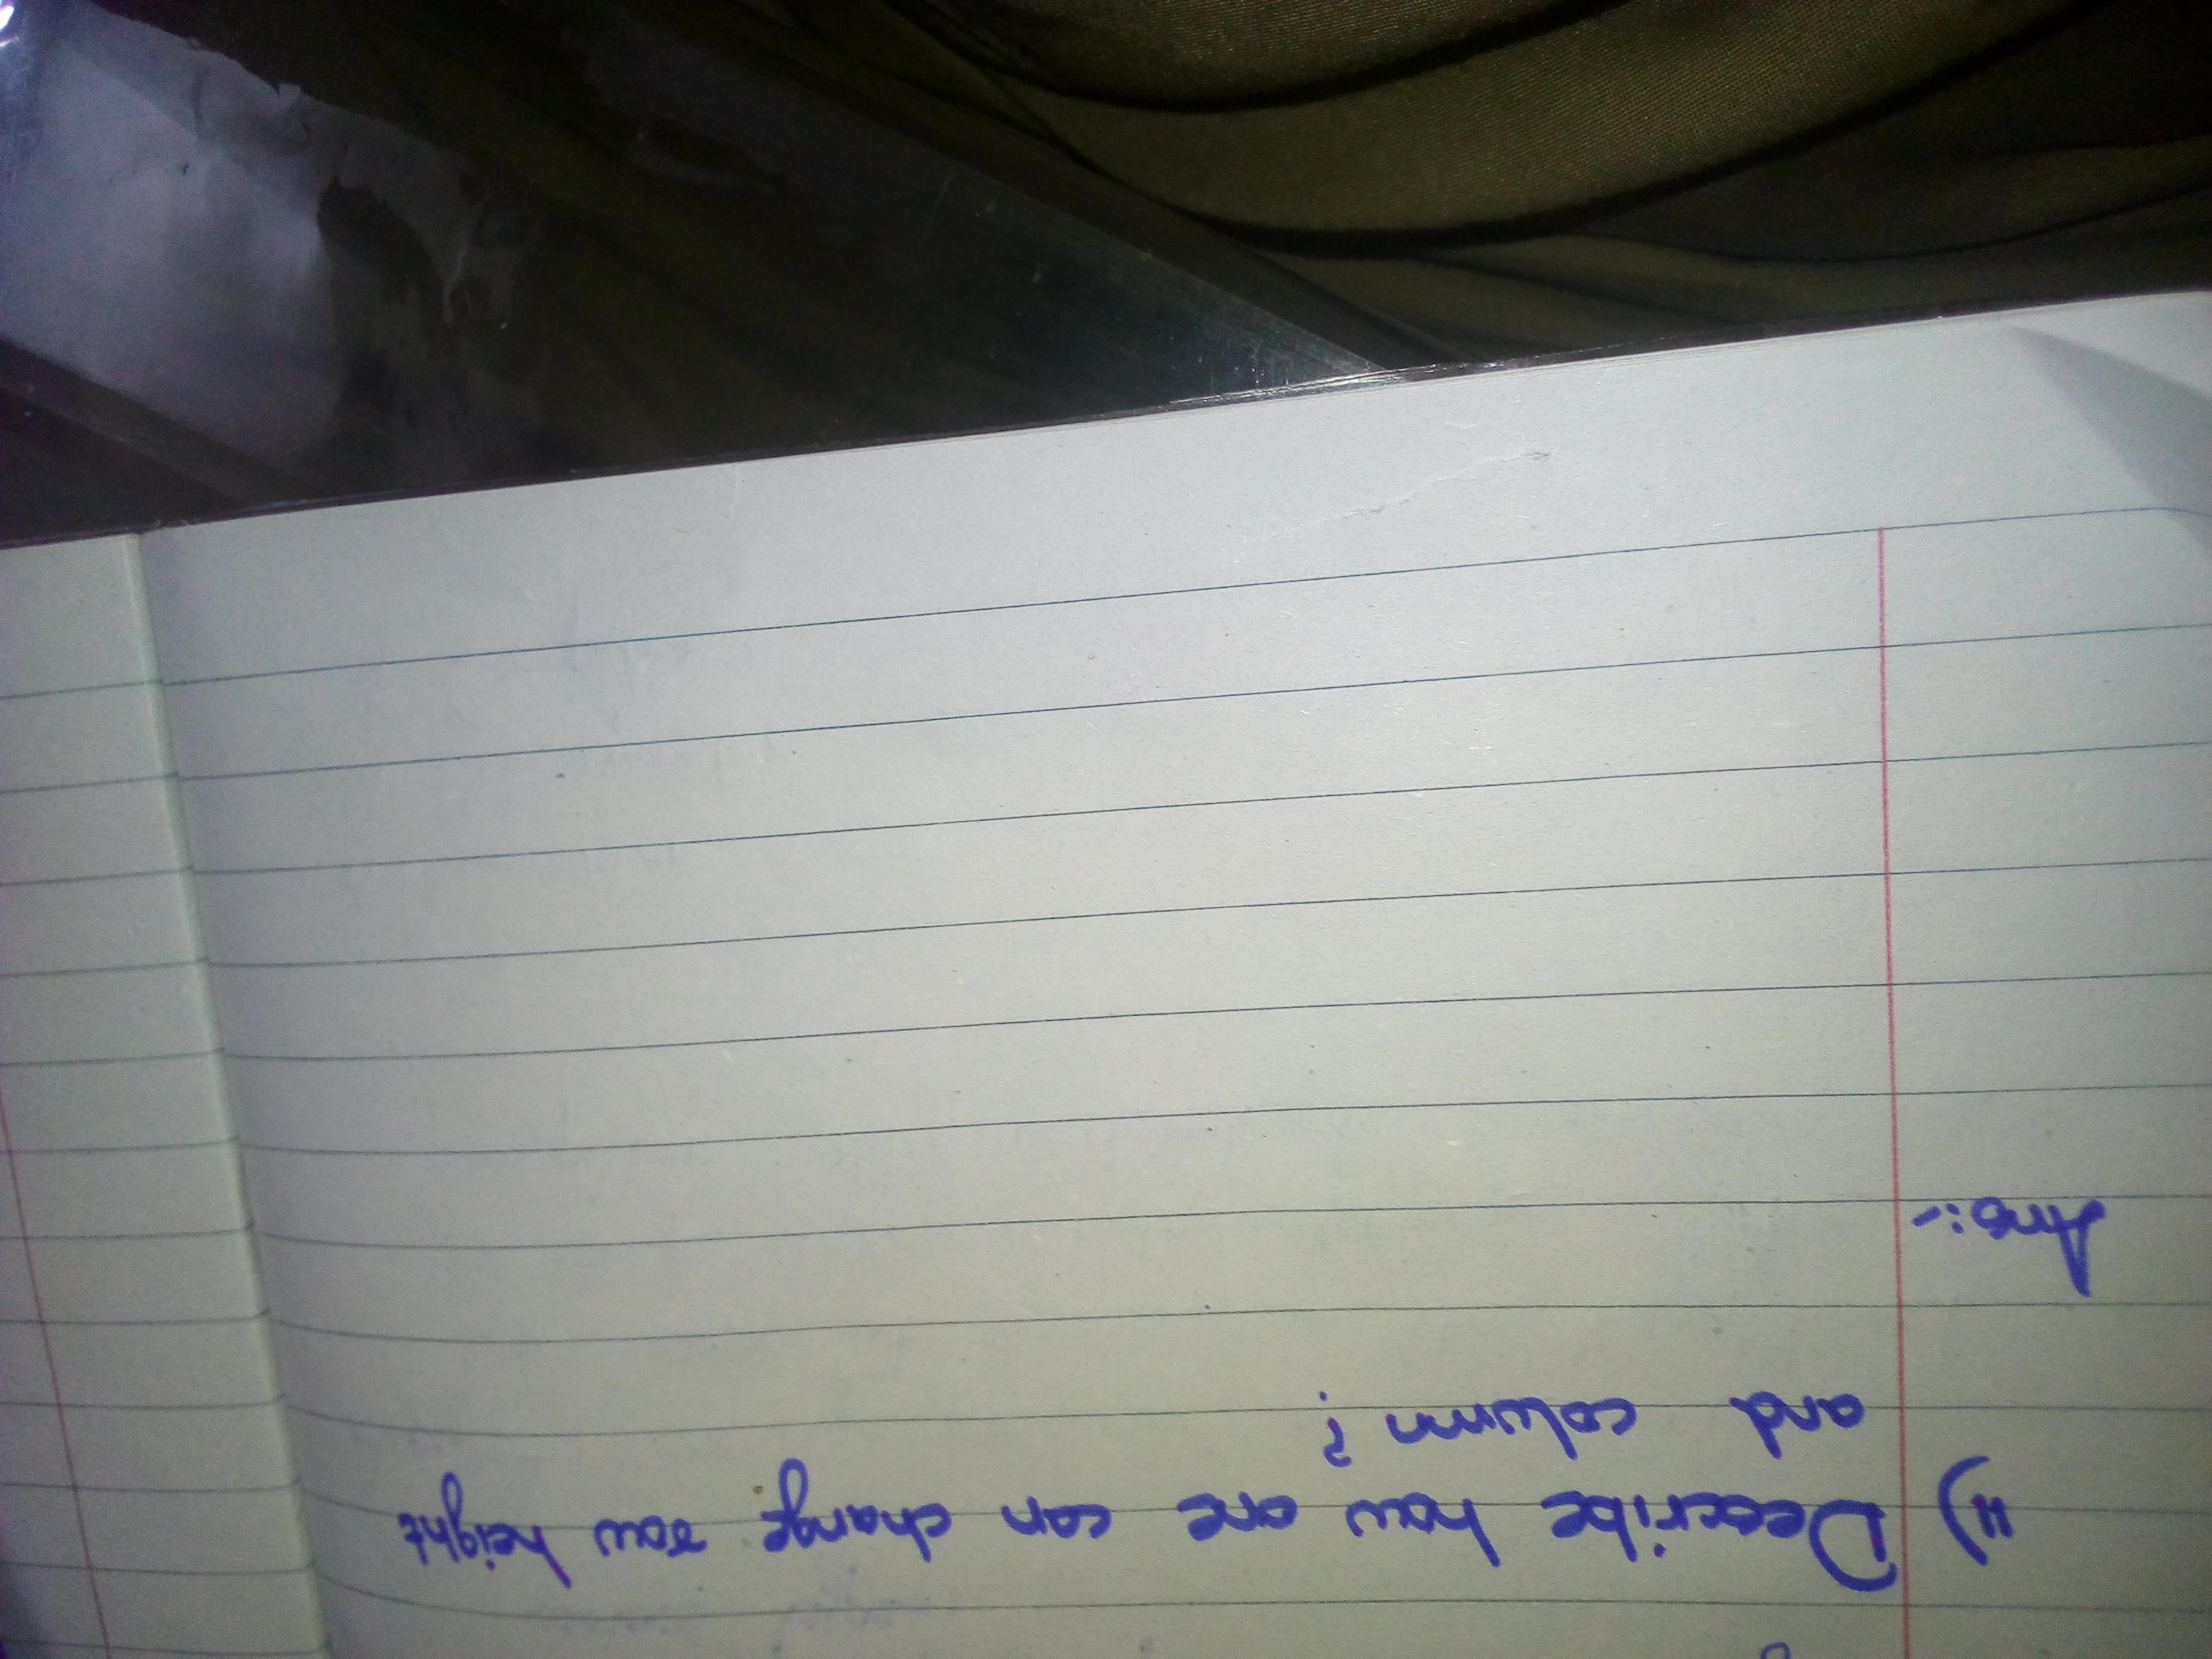 11) Describe how one can change row height
and column?
Ans:-